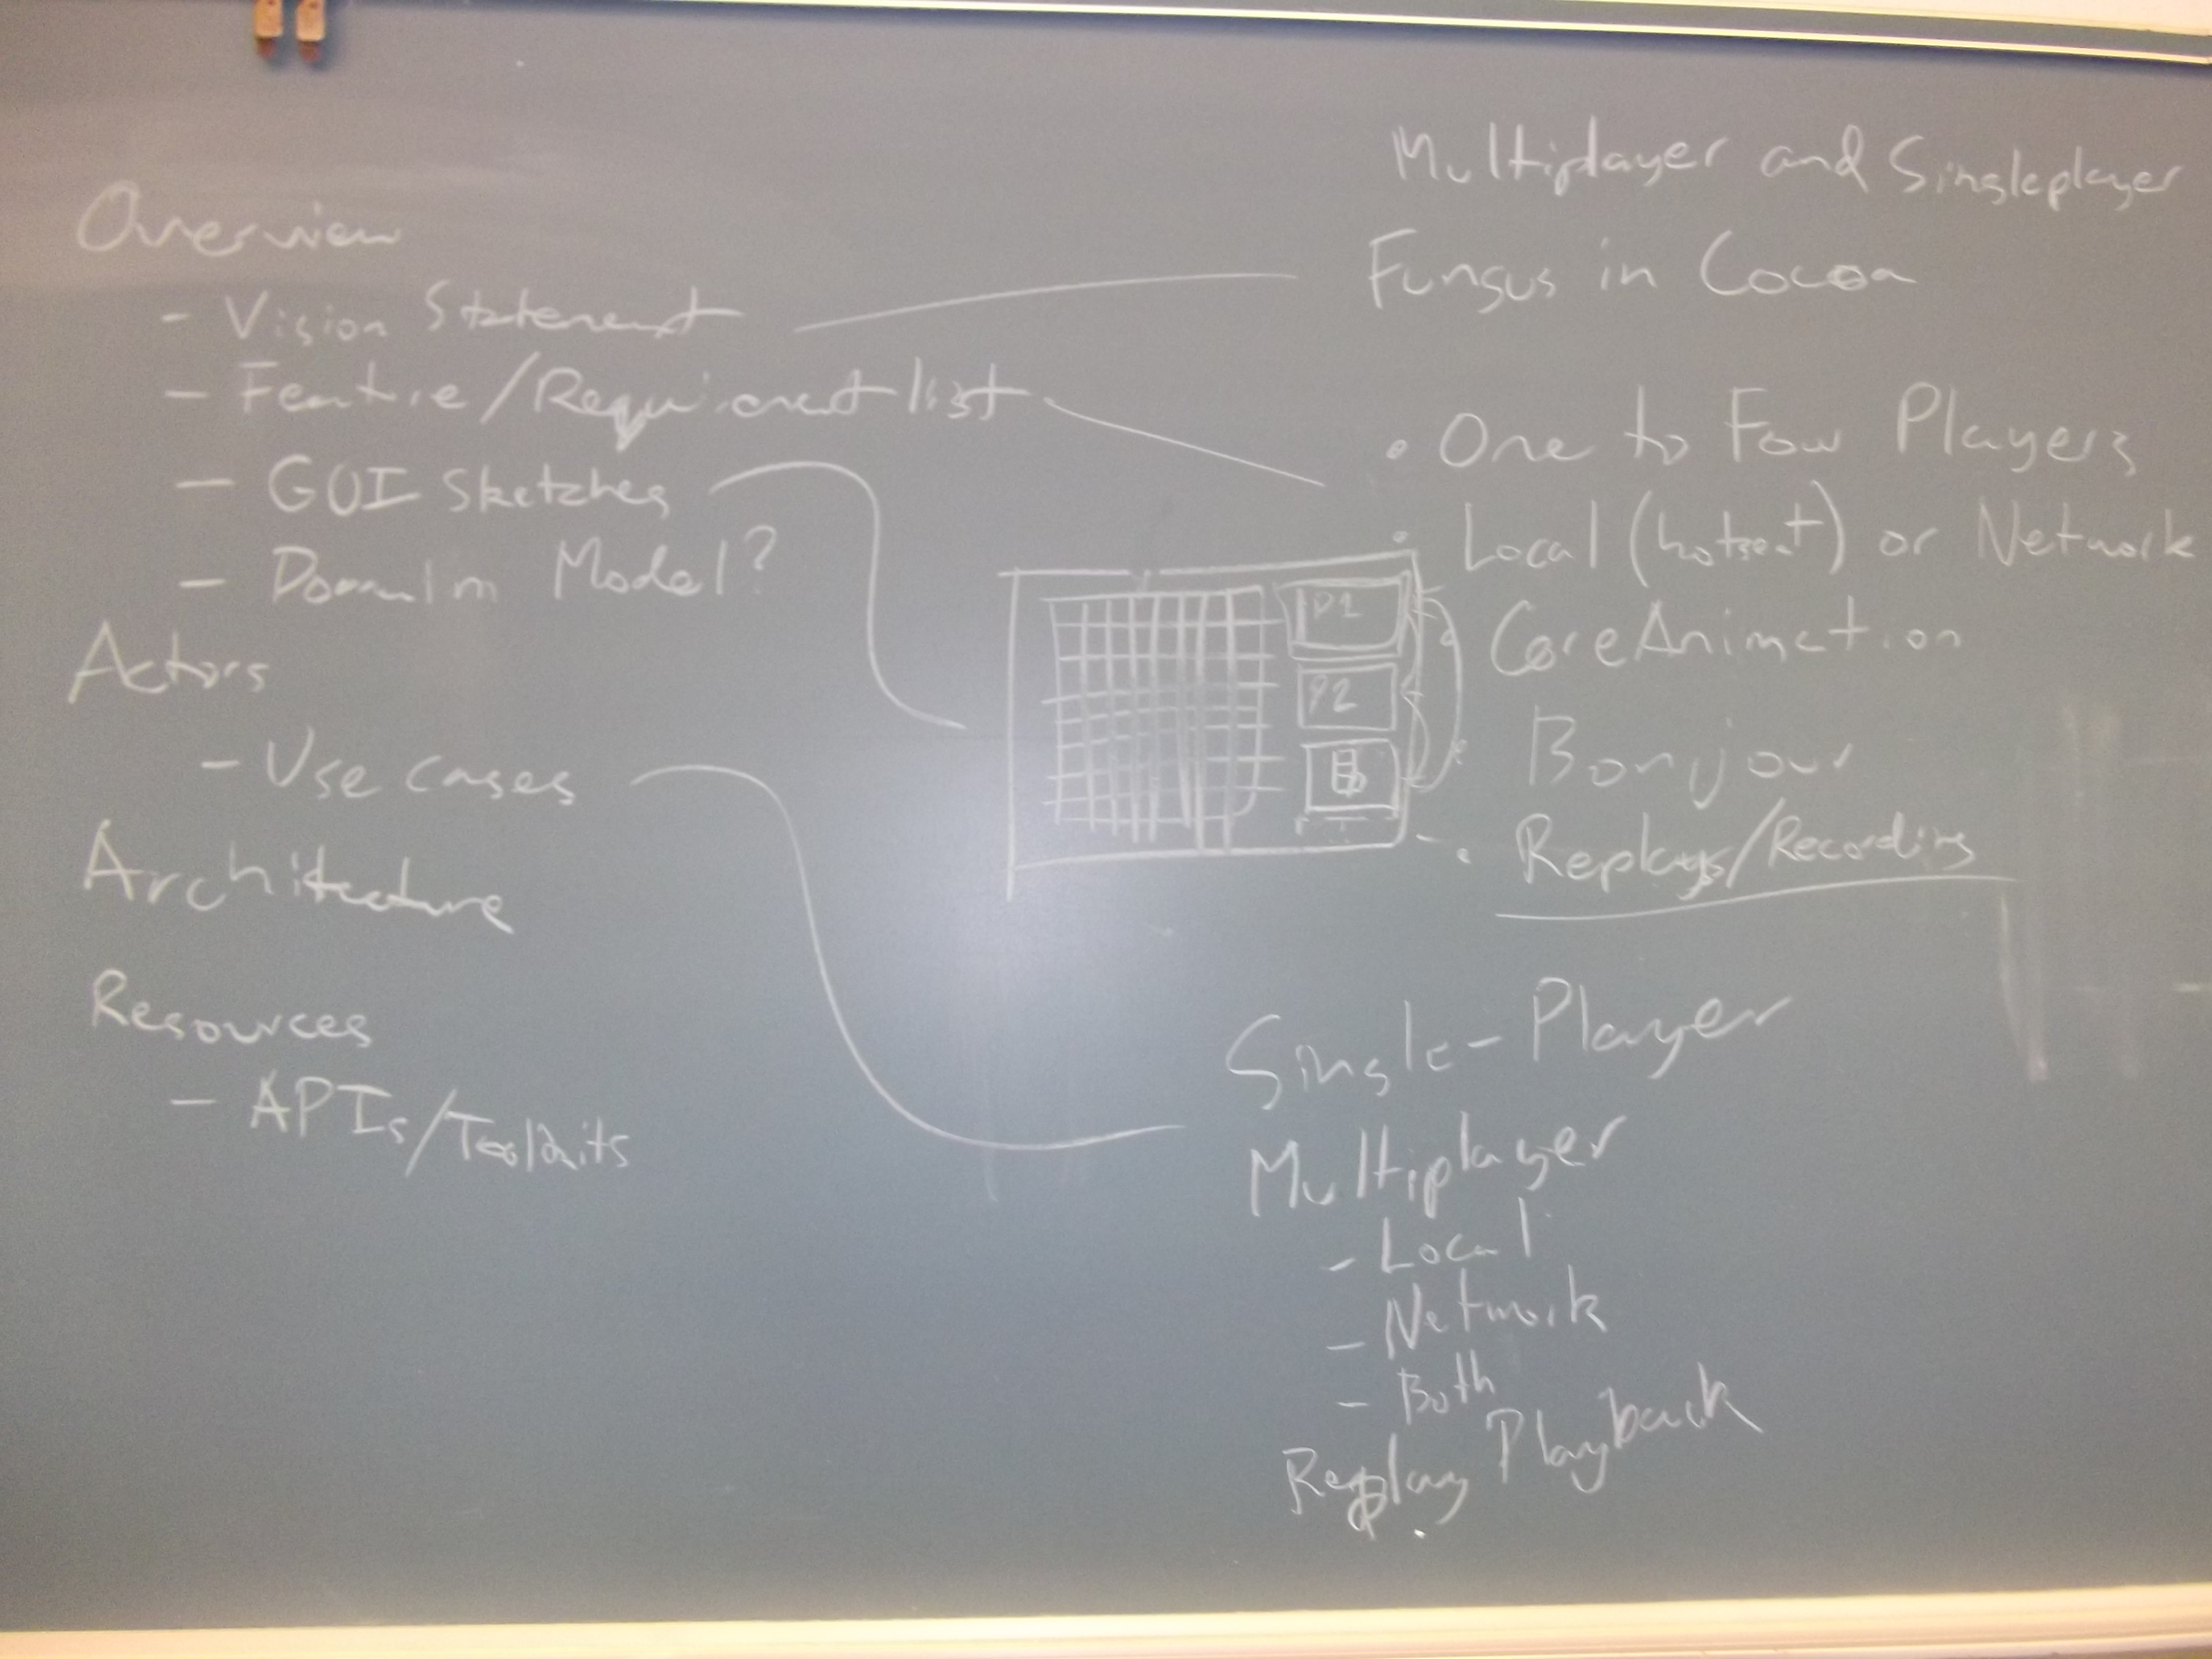 Overview
- Vision Statement
- Feature/Requirement list
- GUI Sketches
- Domain Model?
Actors
- Use cases
Architecture
Resources
- APIs/Toolkits
Multiplayer and Singleplayer
Fungus in Cocoa
• One to Four Players
• Local (hotseat) or Network
• CoreAnimation
• Bonjour
• Replays/Recording
P1
P2
Single-Player
Multiplayer
- Local
- Network
- Both
Replay Playback